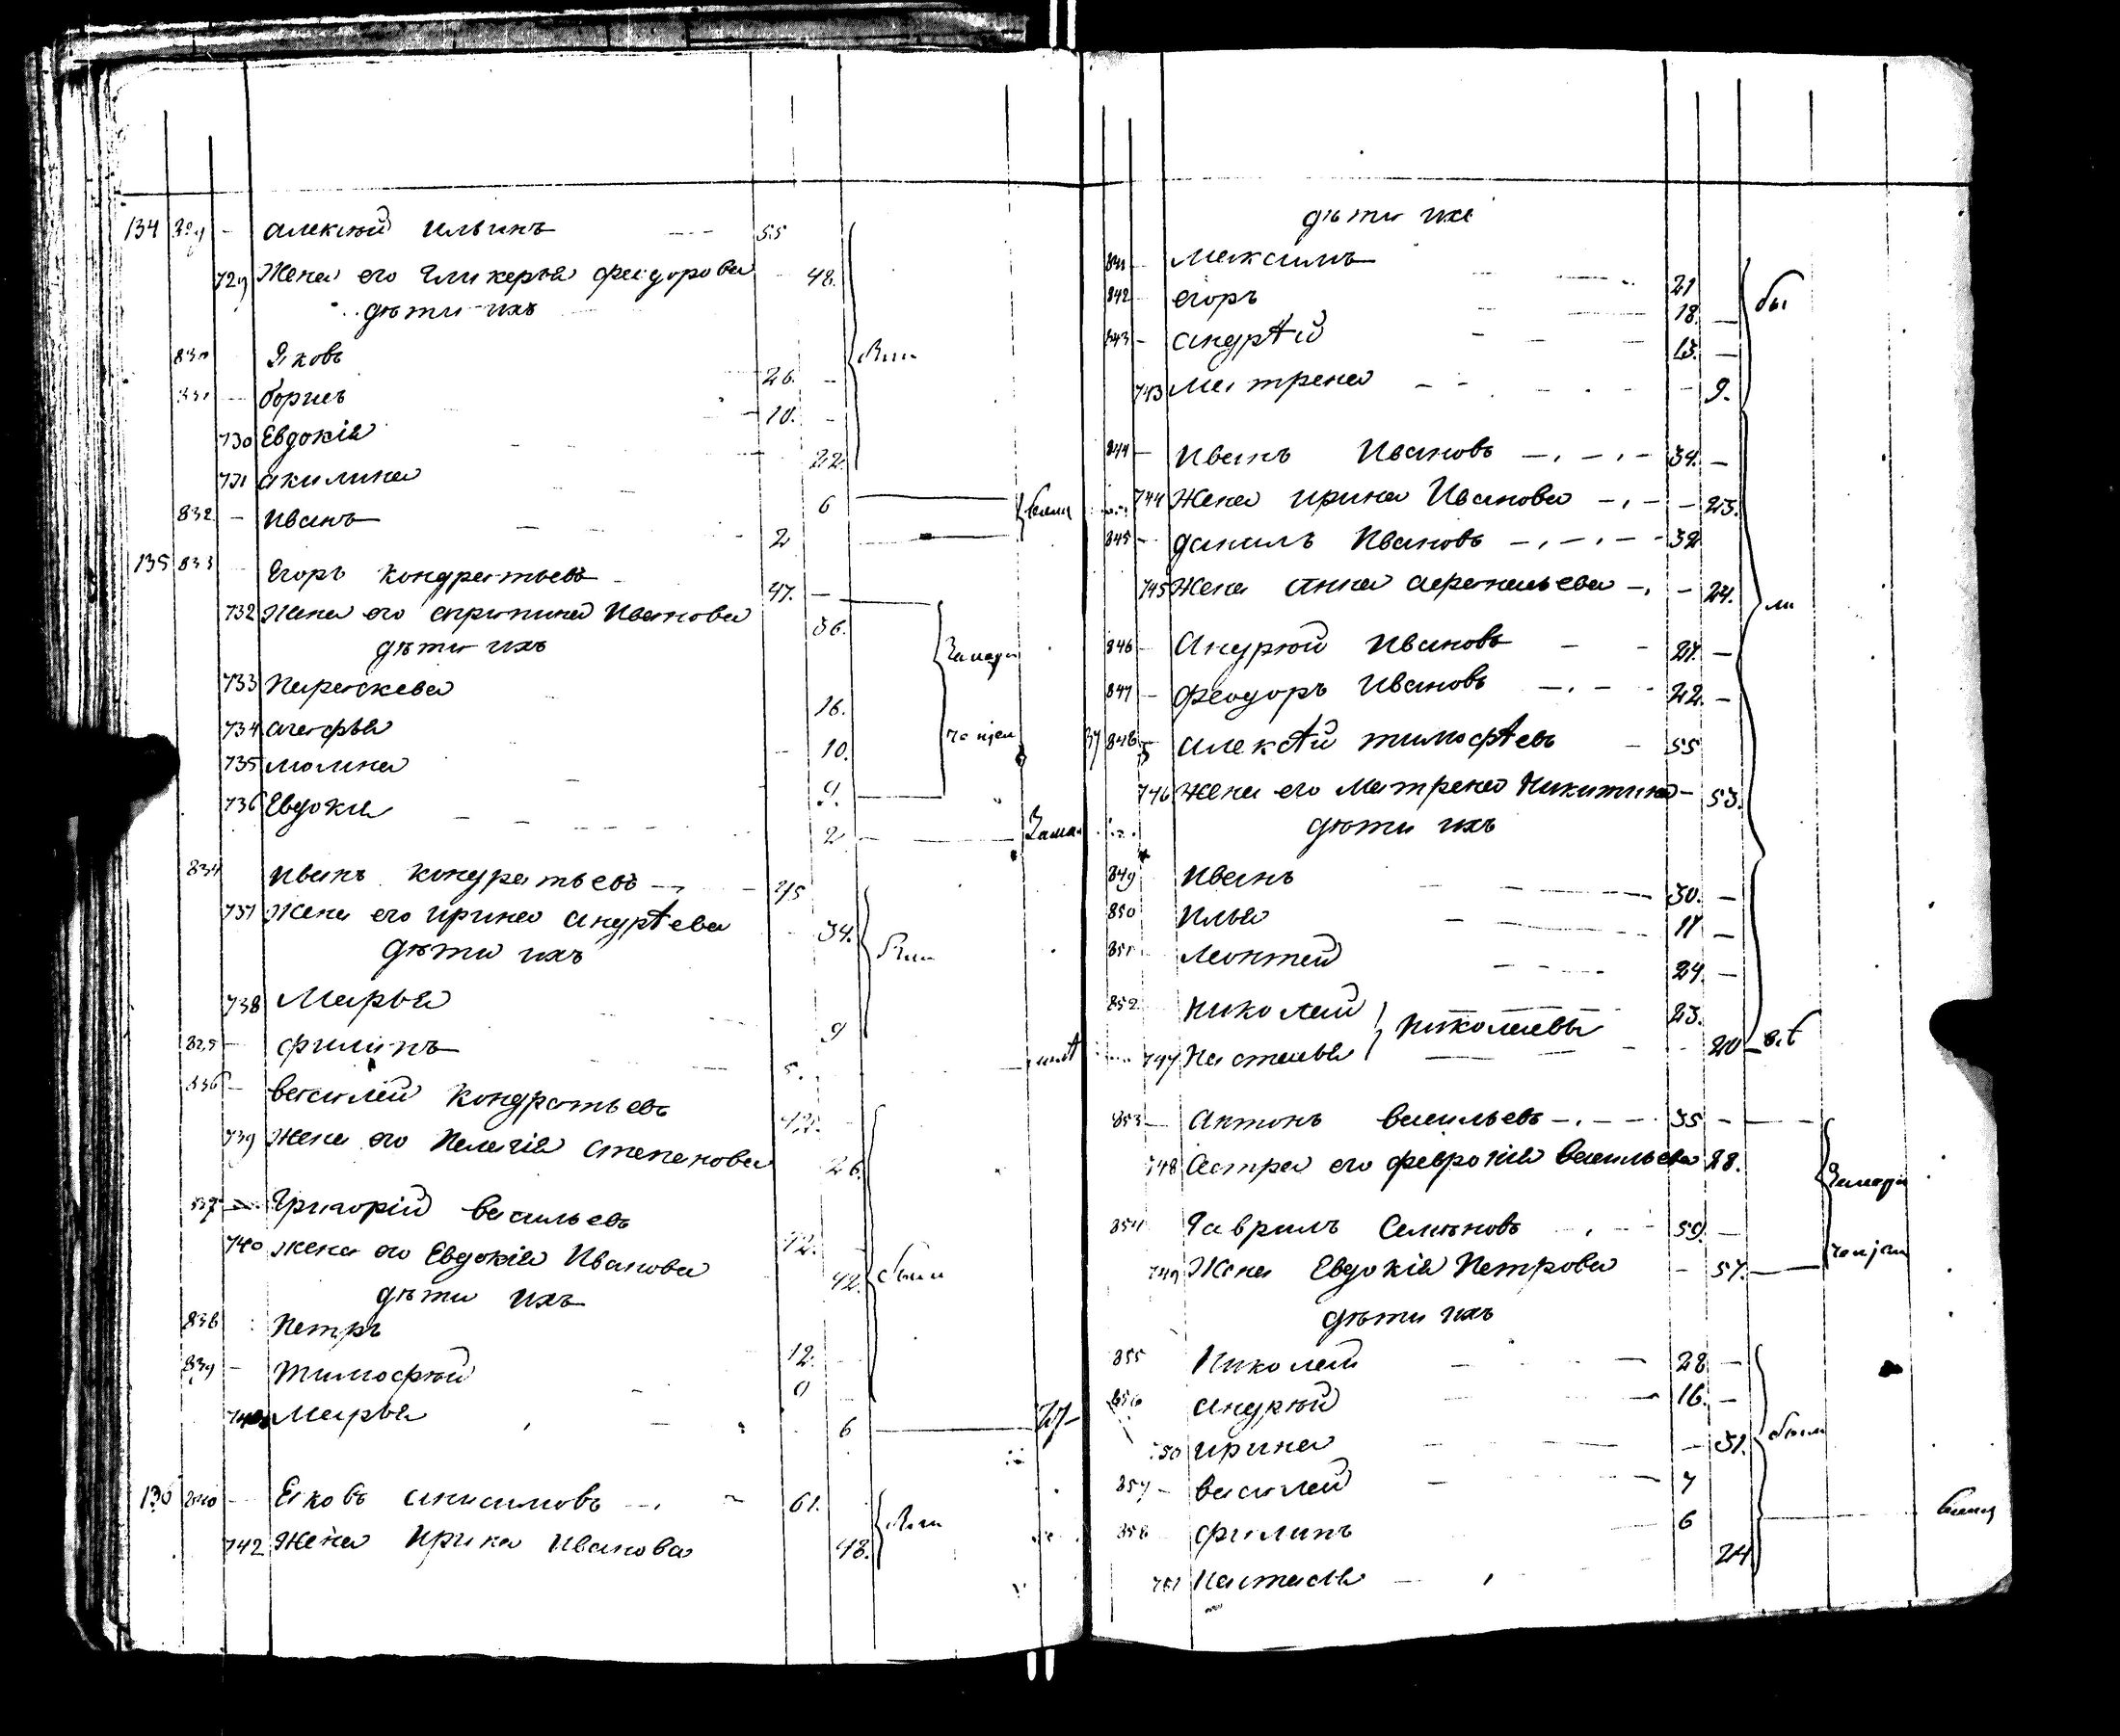 134 829 Алексѣй Ильинъ 55
729 Жена его Гликерья Феодорова 48.
дѣти ихъ
830 Яковъ 26.
831 Борисъ 10.
730 Евдокія 22.
731 Акилина 6
832 Иванъ 2
были
135 833 Егоръ Кондратьевъ 47.
732 Жена его Иванова 36.
дѣти ихъ
733 Параскева 16.
734 Агафья 10.
735 9.
736 Евдокия 2
834 Иванъ Кондратьевъ 45
737 Жена его Ирина Андрѣева 34.
дѣти ихъ
738 Марья 9
835 Филипъ 5.
836 Василей Кондратьевъ 42.
739 Жена его Пелагія Степанова 26.
837 Григорій Васильевъ 42.
740 Жена его Евдокія Иванова 42.
были
дѣти ихъ
838 Петръ 12.
839 Тимофѣй 9
741 Марья 6
136 840 Яковъ Анисимовъ 61.
742 Жена Ирина Иванова 48.
дѣти ихъ
841 Максимъ 21
842 Егоръ 18.
бы
843 Андрѣй 13.
743 Матрена 9.
844 Иванъ Ивановъ 34.
744 Жена Ирина Иванова 23.
845 Данилъ Ивановъ 32
745 Жена Анна Афанасьева 24.
ли
846 Андрѣй Ивановъ 27.
847 Феодоръ Ивановъ 22.
37 848 Алексѣй Тимофѣевъ 55
746 Жена его Матрена Никитина 53.
дѣти ихъ
849 Иванъ 30.
850 Илья 11
851 Леонтей 24.
852 Николай 23.
Николаевы
747 Настасья 20
853 Антонъ Васильевъ 35
748 Сестра его Февронія Васильева 28.
854 Гаврилъ Семеновъ 59.
749 Жена Евдокія Петрова 57.
дѣти ихъ
855 Николай 28
856 Андрѣй 16.
750 Ирина 31.
были
857 Василей 7
858 Филипъ 6
751 Настасья 24